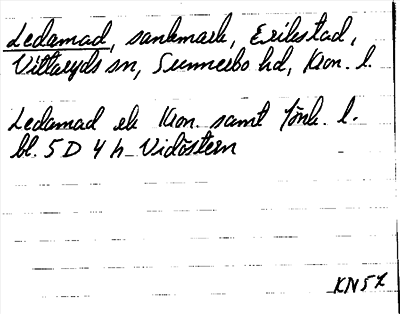 Ledamad, sankmark, Erikstad,
Vittaryds sn, Sunnerbo hd, Kron. l.
Ledamad ek Kron. samt Jönk. l.
bl. 5 D 4 h Vidöstern
KN57